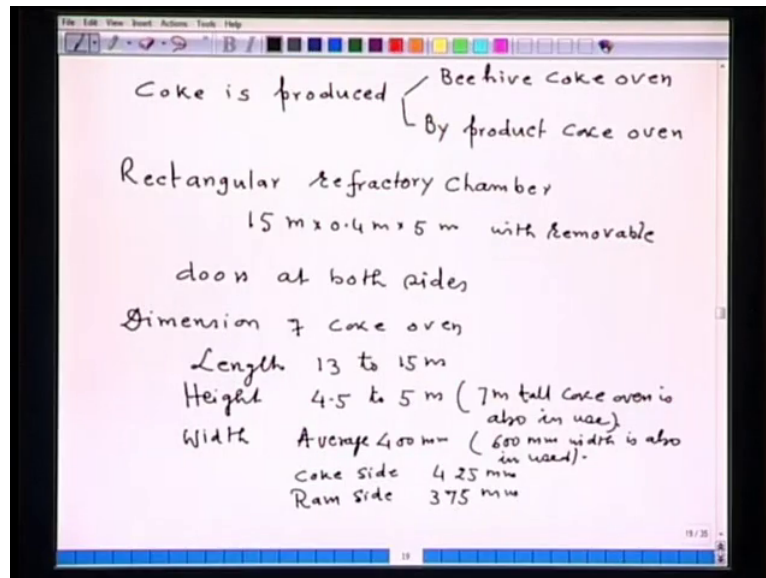 File Edit View Insert Actions Tools Help
Coke is produced
Beehive coke oven
By product coke oven
Rectangular refractory Chamber
15 m x 0.4 m x 5 m with removable
doors at both sides
Dimension of coke oven
Length 13 to 15 m
Height 4.5 to 5 m (7m tall coke oven is
also in use)
Width Average 400 mm (600 mm width is also
in used).
Coke side 425 mm
Ram side 375 mm
19 / 35
19